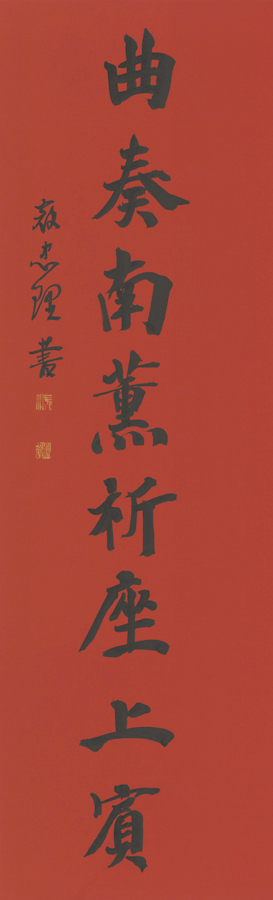 曲奏南薰祈座上賓
忠理書